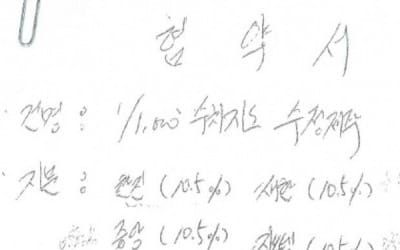 협약서
건명 : 1/1,000 수치지도 수정제작
지분 : 한진 (10.5%) 새한 (10.5%)
중앙 (10.5%)